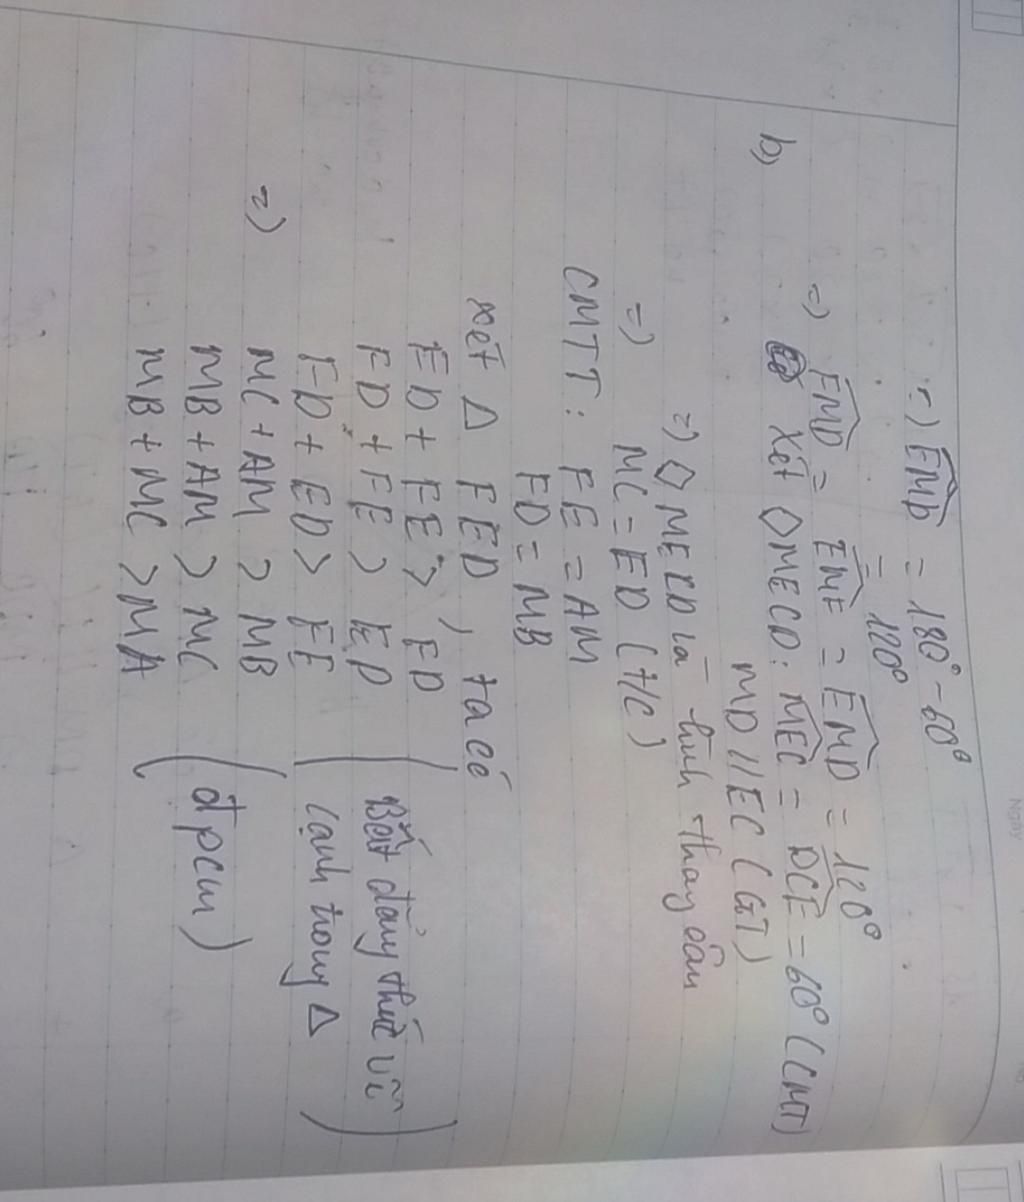 =) EMD = 180° - 60°
= 120°
=) FMD = EMF = EMD = 120°
b) Xét ◇MECD: MEC = DCE = 60° (CMT)
MD // EC (GT)
=) ◇ MECD là hình thang cân
=) MC = ED (t/c)
CMTT: FE = AM
FD = MB
xét Δ FED, ta có
ED + FE > FD
FD + FE > ED
FD + ED > FE
(Bất đẳng thức về cạnh trong Δ)
=) MC + AM > MB
MB + AM > MC
MB + MC > MA
(đpcm)
Ngày